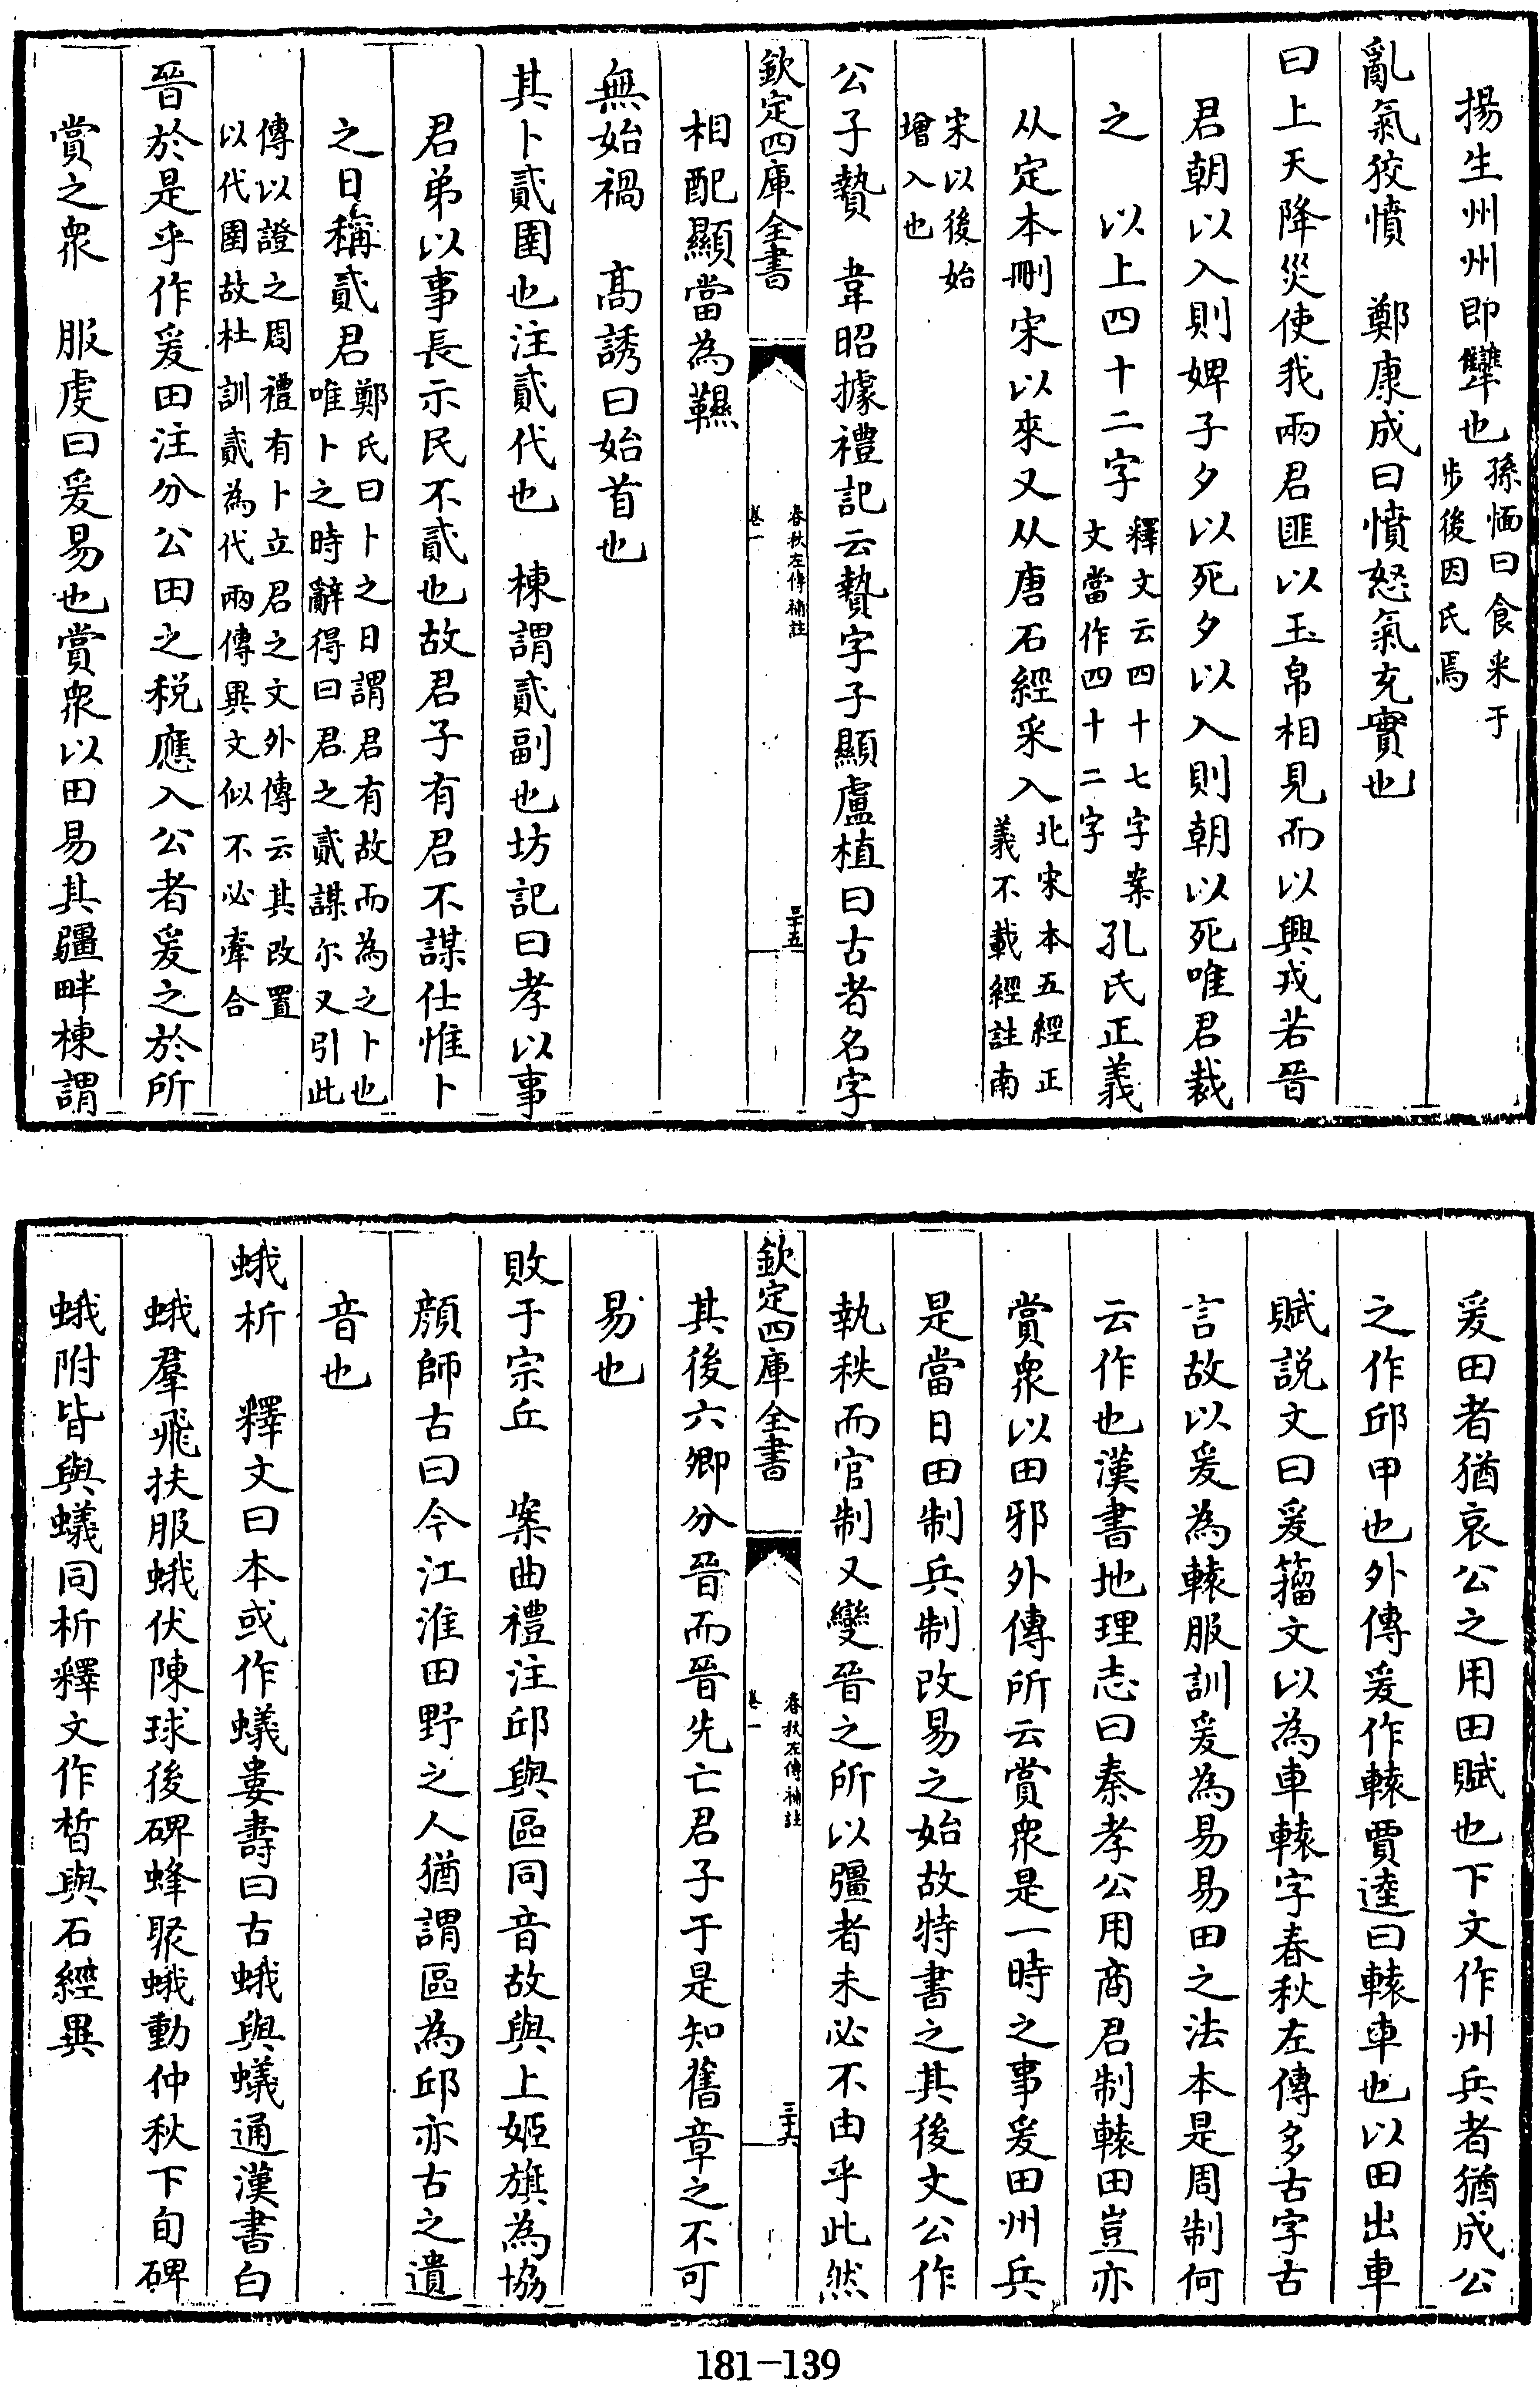 揚生州州即犫也孫愐曰食采于
步後因氏焉
亂氣狡憤　鄭康成曰憤怒氣充實也
曰上天降災使我兩君匪以玉帛相見而以興戎若晉
君朝以入則婢子夕以死夕以入則朝以死唯君裁
之　以上四十二字釋文云四十七字案
文當作四十二字孔氏正義
从定本刪宋以來又从唐石經采入北宋本五經正
義不載經註南
宋以後始
增入也
公子贄　韋昭據禮記云贄字子顯盧植曰古者名字
欽定四庫全書
春秋左傳補註
卷一
三十五
相配顯當為韅
無始禍　高誘曰始首也
其卜貳圉也注貳代也　棟謂貳副也坊記曰孝以事
君弟以事長示民不貳也故君子有君不謀仕惟卜
之日稱貳君鄭氏曰卜之日謂君有故而為之卜也
唯卜之時辭得曰君之貳謀尔又引此
傳以證之周禮有卜立君之文外傳云其改置
以代圉故杜訓貳為代兩傳異文似不必牽合
晉於是乎作爰田注分公田之税應入公者爰之於所
賞之衆　服虔曰爰易也賞衆以田易其疆畔棟謂
爰田者猶哀公之用田賦也下文作州兵者猶成公
之作邱甲也外傳爰作轅賈逵曰轅車也以田出車
賦説文曰爰籀文以為車轅字春秋左傳多古字古
言故以爰為轅服訓爰為易易田之法本是周制何
云作也漢書地理志曰秦孝公用商君制轅田豈亦
賞衆以田邪外傳所云賞衆是一時之事爰田州兵
是當日田制兵制改易之始故特書之其後文公作
執秩而官制又變晉之所以彊者未必不由乎此然
欽定四庫全書
春秋左傳補註
卷一
三十六
其後六卿分晉而晉先亡君子于是知舊章之不可
易也
敗于宗丘　案曲禮注邱與區同音故與上姬旗為協
顔師古曰今江淮田野之人猶謂區為邱亦古之遺
音也
蛾析　釋文曰本或作蟻婁壽曰古蛾與蟻通漢書白
蛾羣飛扶服蛾伏陳球後碑蜂聚蛾動仲秋下旬碑
蛾附皆與蟻同析釋文作晳與石經異
181-139